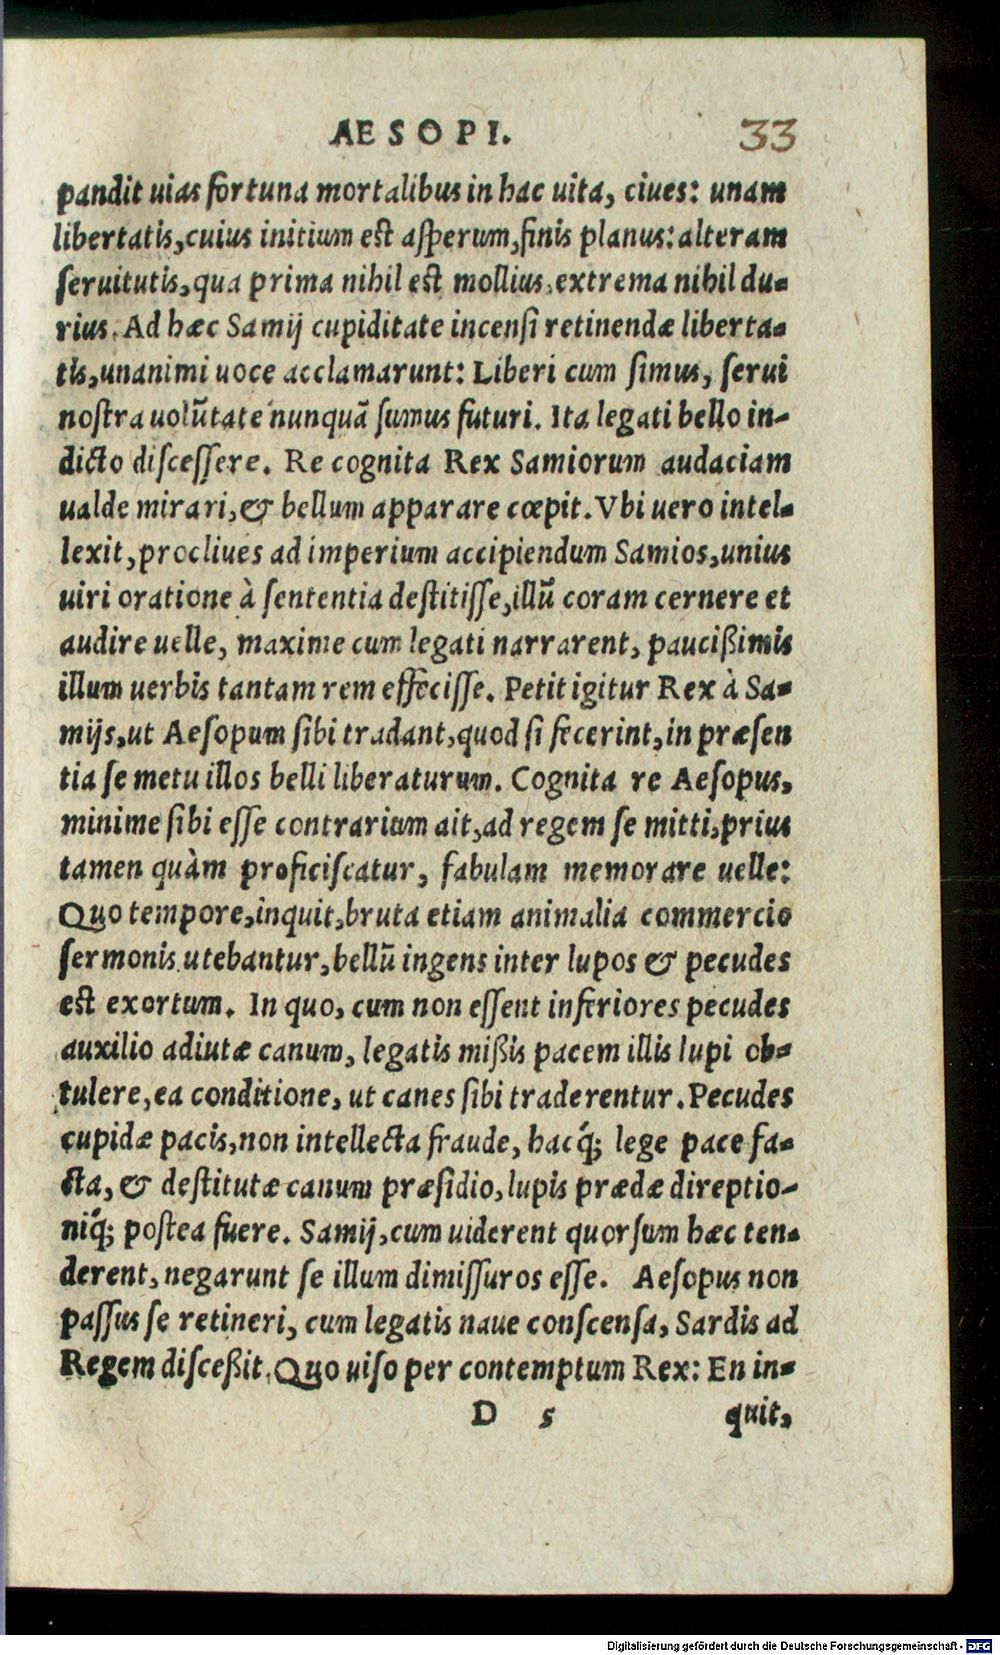 AESOPI.
33
pandit uias fortuna mortalibus in hac uita, ciues: unam
libertatis, cuius initium est asperum, finis planus: alteram
seruitutis, qua prima nihil est mollius, extrema nihil du-
rius. Ad hæc Samij cupiditate incensi retinendæ liberta-
tis, unanimi uoce acclamarunt: Liberi cum simus, serui
nostra uolũtate nunquã sumus futuri. Ita legati bello in-
dicto discessere. Re cognita Rex Samiorum audaciam
ualde mirari, & bellum apparare cœpit. Vbi uero intel-
lexit, procliues ad imperium accipiendum Samios, unius
uiri oratione à sententia destitisse, illũ coram cernere et
audire uelle, maxime cum legati narrarent, paucißimis
illum uerbis tantam rem effecisse. Petit igitur Rex à Sa-
mijs, ut Aesopum sibi tradant, quod si fecerint, in præsen
tia se metu illos belli liberaturum. Cognita re Aesopus,
minime sibi esse contrarium ait, ad regem se mitti, prius
tamen quàm proficiscatur, fabulam memorare uelle:
Quo tempore, inquit, bruta etiam animalia commercio
sermonis utebantur, bellũ ingens inter lupos & pecudes
est exortum. In quo, cum non essent inferiores pecudes
auxilio adiutæ canum, legatis mißis pacem illis lupi ob-
tulere, ea conditione, ut canes sibi traderentur. Pecudes
cupidæ pacis, non intellecta fraude, hacq́; lege pace fa-
cta, & destitutæ canum præsidio, lupis prædæ direptio-
niq́; postea fuere. Samij, cum uiderent quorsum hæc ten-
derent, negarunt se illum dimissuros esse. Aesopus non
passus se retineri, cum legatis naue conscensa, Sardis ad
Regem disceßit. Quo uiso per contemptum Rex: En in-
D 5 quit,
Digitalisierung gefördert durch die Deutsche Forschungsgemeinschaft - DFG